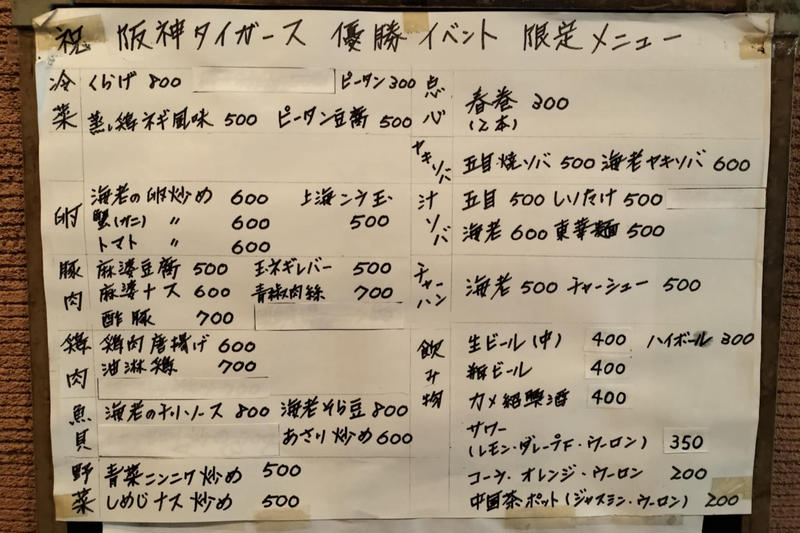 祝 阪神タイガース 優勝 イベント 限定メニュー
冷菜
くらげ 800 ピータン 300
蒸し鶏ネギ風味 500 ピータン豆腐 500
卵
海老の卵炒め 600 上海ニラ玉 500
蟹(カニ) 〃 600
トマト 〃 600
豚肉
麻婆豆腐 500 玉ネギレバー 500
麻婆ナス 600 青椒肉絲 700
酢豚 700
鶏肉
鶏肉唐揚げ 600
油淋鶏 700
魚貝
海老のチリソース 800 海老そら豆 800
あさり炒め 600
野菜
青菜ニンニク炒め 500
しめじナス炒め 500
点心
春巻 300
(2本)
ヤキソバ
五目焼ソバ 500 海老ヤキソバ 600
汁ソバ
五目 500 しいたけ 500
海老 600 東華麺 500
チャーハン
海老 500 チャーシュー 500
飲み物
生ビール(中) 400 ハイボール 300
瓶ビール 400
カメ紹興酒 400
サワー
(レモン・グレープF・ウーロン) 350
コーラ・オレンジ・ウーロン 200
中国茶ポット(ジャスミン・ウーロン) 200